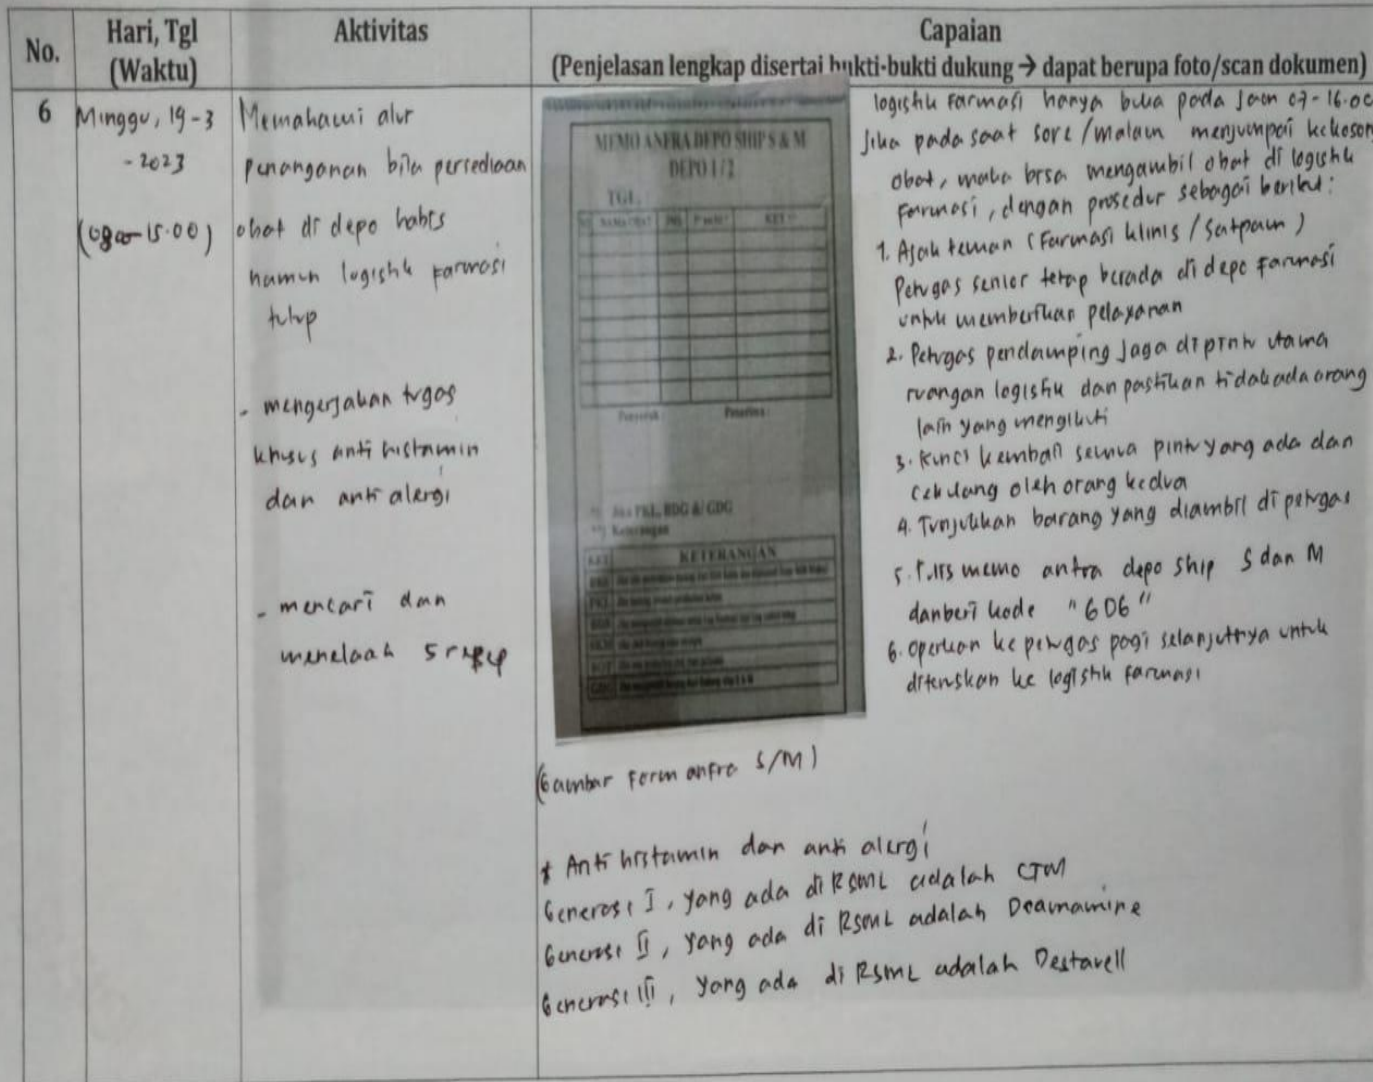 No.
Hari, Tgl
(Waktu)
Aktivitas
Capaian
(Penjelasan lengkap disertai bukti-bukti dukung → dapat berupa foto/scan dokumen)
6
Minggu, 19-3
- 2023
(0800-15.00)
Memahami alur
penanganan bila persediaan
obat di depo habis
namun logistik farmasi
tutup
- mengerjakan tugas
khusus anti histamin
dan anti alergi
- mencari dan
menelaah 5 resep
MEMO ANFRA DEPO SHIP S & M
DEPO 1 / 2
TGL :
KET
Penerima :
*) Jika PKL, BDG & GDG
**) Keterangan
KET
KETERANGAN
PKL
GDG
logistik Farmasi hanya buka pada Jam 07-16.00
Jika pada saat sore/malam menjumpai kekoson
obat, maka bisa mengambil obat di logistik
Farmasi, dengan prosedur sebagai berikut:
1. Ajak teman (Farmasi klinis / Satpam)
Petugas senior tetap berada di depo Farmasi
untuk memberikan pelayanan
2. Petugas pendamping Jaga di pintu utama
ruangan logistik dan pastikan tidak ada orang
lain yang mengikuti
3. Kunci kembali semua pintu yang ada dan
cek ulang oleh orang kedua
4. Tunjukkan barang yang diambil di petugas
5. Tulis memo anfra depo ship S dan M
dan beri kode "GDG"
6. Operkan ke petugas pagi selanjutnya untuk
diteruskan ke logistik farmasi
(Gambar Form anfra S/M)
* Anti histamin dan anti alergi
Generasi I, yang ada di RSML adalah CTM
Generasi II, yang ada di RSML adalah Dramamine
Generasi III, yang ada di RSML adalah Destavell